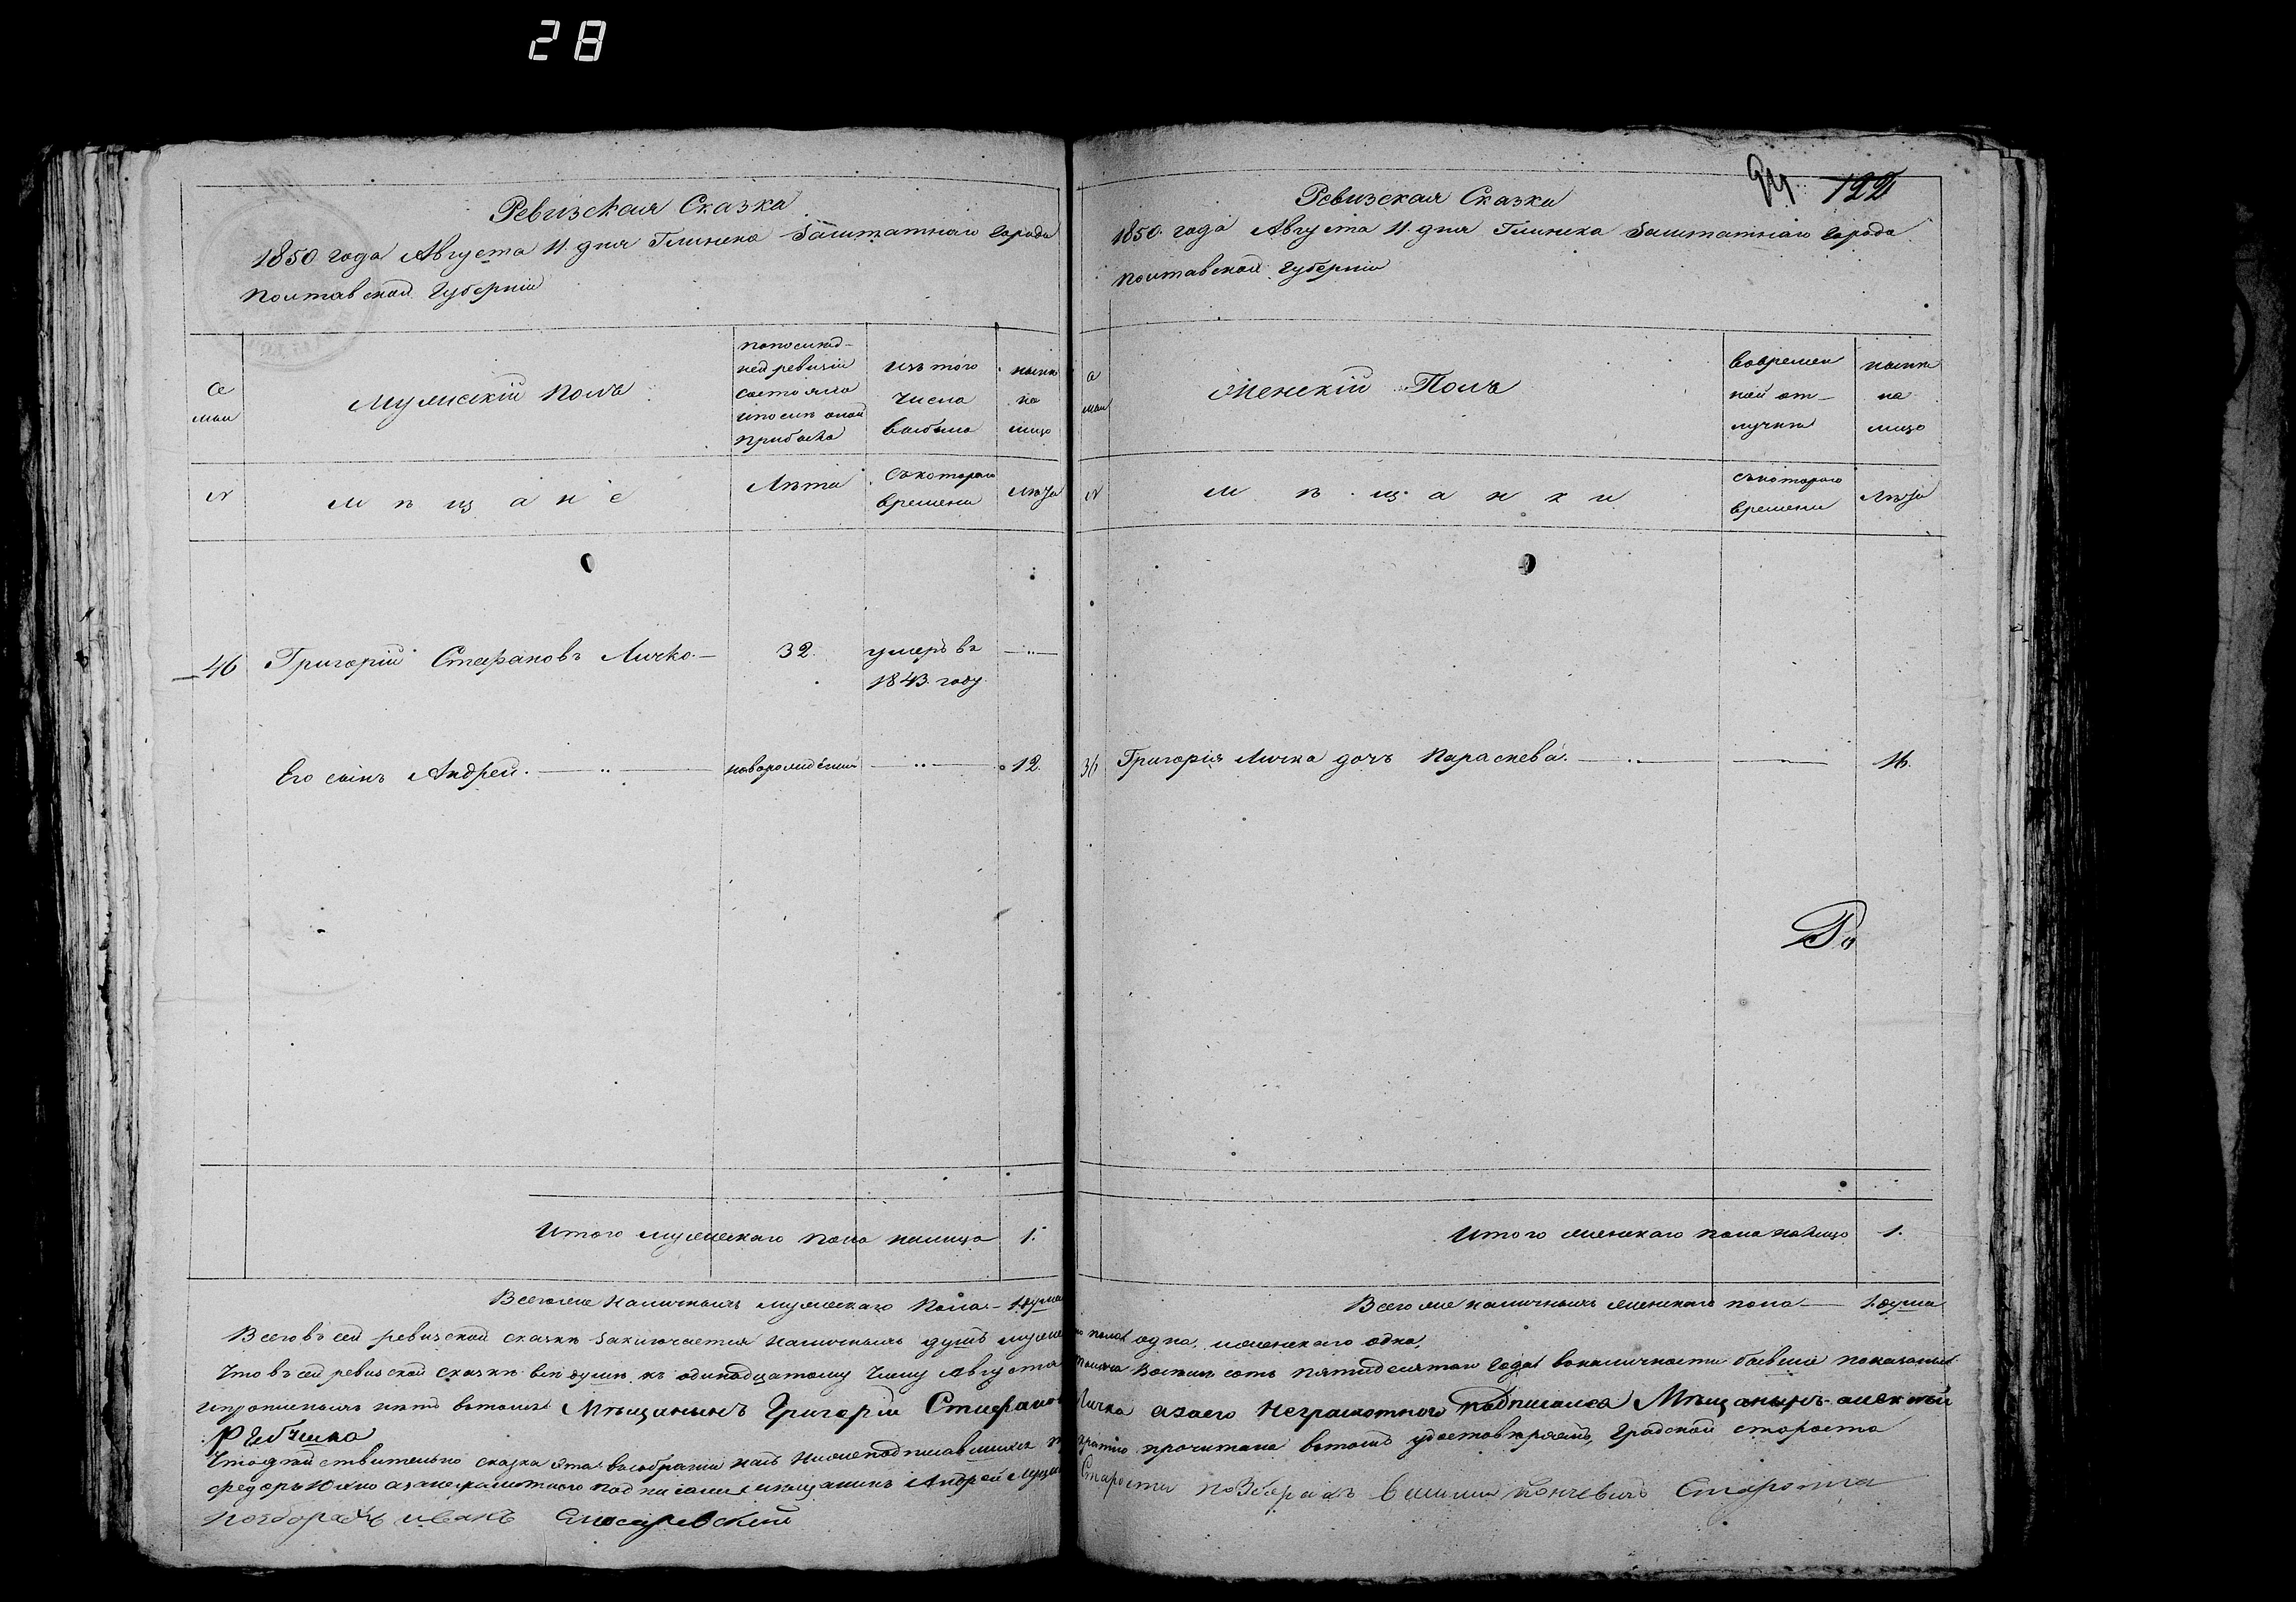 28
Ревизская Сказка
1850 года Августа 11 дня Глинска Заштатного города
Полтавской Губерніи
Се
мьи
Мужескій полъ
по послѣд-
ней ревизіи
состояло
и послѣ оной
прибыло
изъ того
числа
выбыло
нынѣ
на
лицо
№
Мѣщане
Лѣта
съ котораго
времени
Лѣта
46 Григорій Стефановъ Личко — 32. умеръ въ — „ —
1843 году.
Его сынъ Андрей. — „ — новорожденный — „ — 12.
Итого мужескаго пола налицо 1.
Всего же наличныхъ мужескаго пола — 1 душа
94. 122
Ревизская Сказка
1850 года Августа 11 дня Глинска Заштатного города
Полтавской Губерніи
Се
мьи
Женскій Полъ
во времен
ной от-
лучкѣ
нынѣ
на
лицо
№
Мѣщанки
съ котораго
времени
Лѣта
Григорія Личка дочь Параскева. — „ — — 16.
Итого женскаго пола налицо 1.
Всего же наличныхъ женскаго пола — 1 душа
Всего въ сей ревизской сказкѣ заключается наличныхъ душъ мужеска пола одна, женскаго одна,
Что въ сей ревизской сказкѣ всѣ души къ одинадцатому числу Августа восемь сотъ пятидесятого года въ наличности бывшіе показаны
и прописныхъ нѣтъ въ томъ Мѣщанинъ Григорій Стефановъ Личка а за его неграмотного подписался Мѣщанынъ алексѣй
Что действительно сказка эта въ собраніи насъ нижеподписавшихся прочитана въ томъ удостовѣряемъ, Градской староста
федоръ Юхно а за неграмотного подписался мѣщанинъ Андрей Староста
иванъ Слюсаревскій